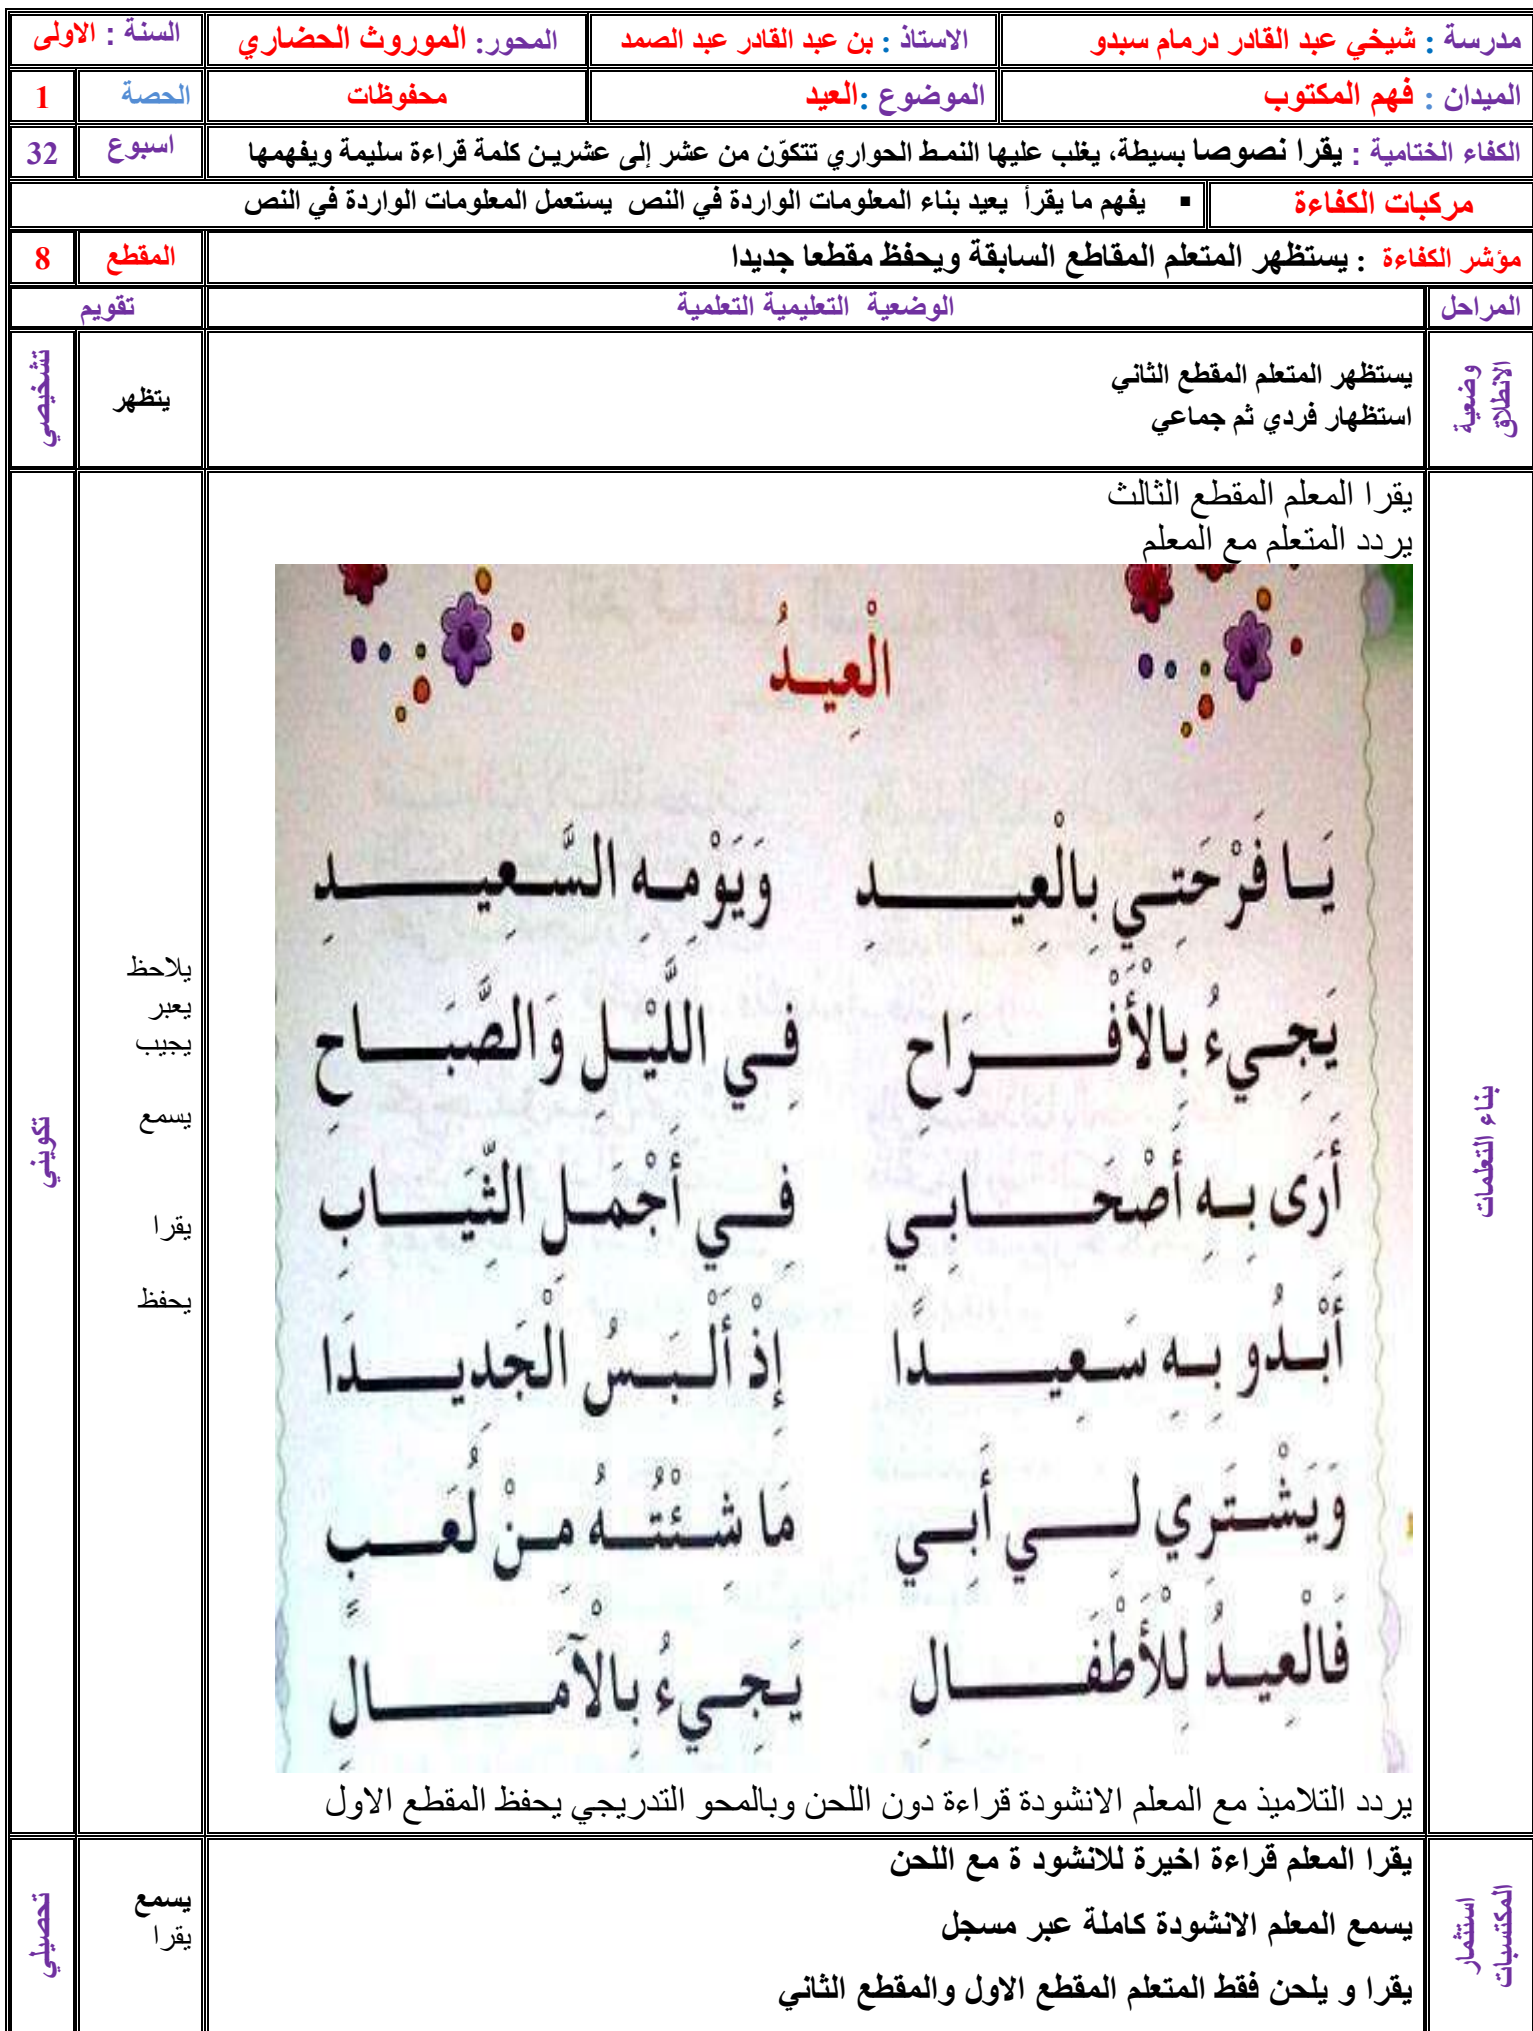 مدرسة : شيخي عبد القادر درمام سبدو الاستاذ : بن عبد القادر عبد الصمد المحور: الموروث الحضاري السنة : الاولى
الميدان : فهم المكتوب الموضوع :العيد محفوظات الحصة 1
الكفاء الختامية : يقرا نصوصا بسيطة، يغلب عليها النمط الحواري تتكوّن من عشر إلى عشرين كلمة قراءة سليمة ويفهمها اسبوع 32
مركبات الكفاءة ▪ يفهم ما يقرأ يعيد بناء المعلومات الواردة في النص يستعمل المعلومات الواردة في النص
مؤشر الكفاءة : يستظهر المتعلم المقاطع السابقة ويحفظ مقطعا جديدا المقطع 8
المراحل الوضعية التعليمية التعلمية تقويم
وضعية
الانطلاق
يستظهر المتعلم المقطع الثاني
استظهار فردي ثم جماعي
يتظهر
تشخيصي
بناء التعلمات
يقرا المعلم المقطع الثالث
يردد المتعلم مع المعلم
الْعِيدُ
يَا فَرْحَتِي بِالْعِيدِ وَيَوْمِهِ السَّعِيدِ
يَجِيءُ بِالْأَفْرَاحِ فِي اللَّيْلِ وَالصَّبَاحِ
أَرَى بِهِ أَصْحَابِي فِي أَجْمَلِ الثِّيَابِ
أَبْدُو بِهِ سَعِيدًا إِذْ أَلْبَسُ الْجَدِيدَا
وَيَشْتَرِي لِي أَبِي مَا شِئْتُهُ مِنْ لُعَبٍ
فَالْعِيدُ لِلْأَطْفَالِ يَجِيءُ بِالْآمَالِ
يردد التلاميذ مع المعلم الانشودة قراءة دون اللحن وبالمحو التدريجي يحفظ المقطع الاول
يلاحظ
يعبر
يجيب
يسمع
يقرا
يحفظ
تكويني
استثمار
المكتسبات
يقرا المعلم قراءة اخيرة للانشود ة مع اللحن
يسمع المعلم الانشودة كاملة عبر مسجل
يقرا و يلحن فقط المتعلم المقطع الاول والمقطع الثاني
يسمع
يقرا
تحصيلي